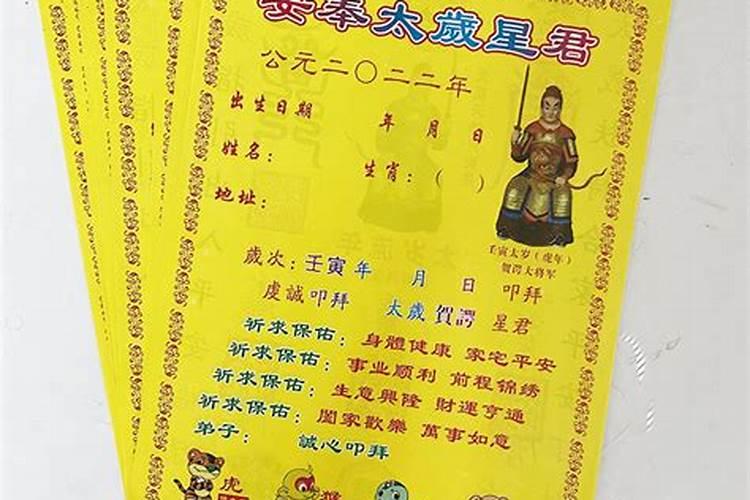 安奉太歲星君
公元二〇二二年
出生日期　年　月　日
姓名：　生肖：（　）
地址：
壬寅太岁（虎年）
賀諤大將军
歲次：壬寅年　月　日　叩拜
虔誠叩拜　太歲賀諤星君
祈求保佑：身體健康　家宅平安
祈求保佑：事业顺利　前程锦绣
祈求保佑：生意興隆　財運亨通
祈求保佑：闔家歡樂　萬事如意
弟子：　誠心叩拜
虎
猴